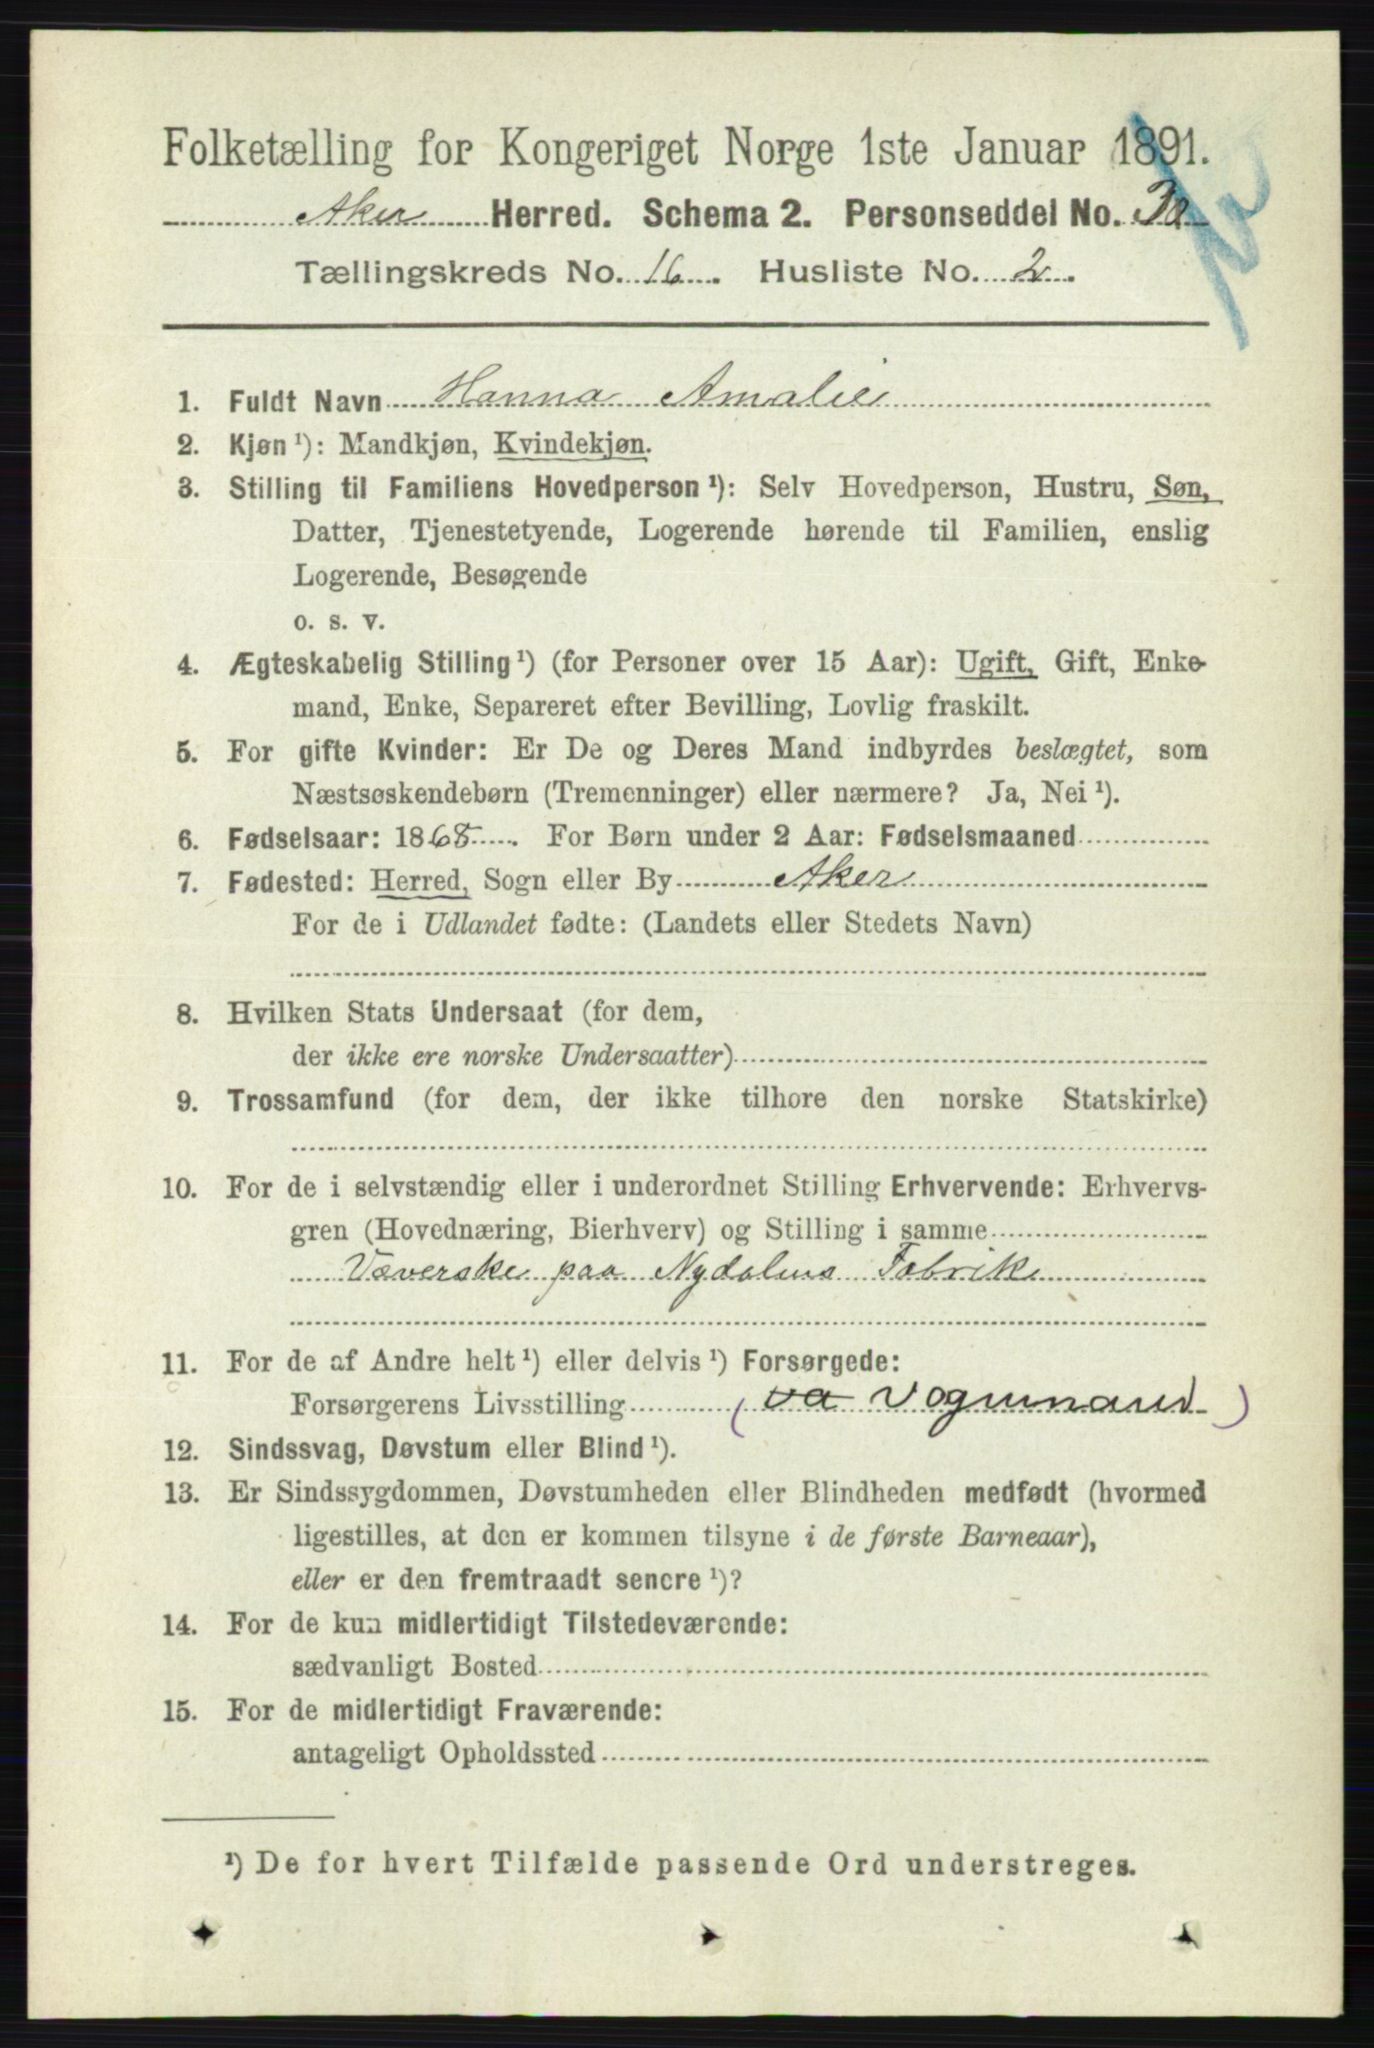 Folketælling for Kongeriget Norge 1ste Januar 1891.
Aker Herred. Schema 2. Personseddel No.
Tællingskreds No. 16. Husliste No. 2.
1. Fuldt Navn Hanna Amalie
2. Kjøn ¹): Mandkjøn, Kvindekjøn.
3. Stilling til Familiens Hovedperson ¹): Selv Hovedperson, Hustru, Søn,
Datter, Tjenestetyende, Logerende hørende til Familien, enslig
Logerende, Besøgende
o. s. v.
4. Ægteskabelig Stilling ¹) (for Personer over 15 Aar): Ugift, Gift, Enke-
mand, Enke, Separeret efter Bevilling, Lovlig fraskilt.
5. For gifte Kvinder: Er De og Deres Mand indbyrdes beslægtet, som
Næstsøskendebørn (Tremenninger) eller nærmere? Ja, Nei ¹).
6. Fødselsaar: 1868. For Børn under 2 Aar: Fødselsmaaned
7. Fødested: Herred, Sogn eller By Aker
For de i Udlandet fødte: (Landets eller Stedets Navn)
8. Hvilken Stats Undersaat (for dem,
der ikke ere norske Undersaatter)
9. Trossamfund (for dem, der ikke tilhøre den norske Statskirke)
10. For de i selvstændig eller i underordnet Stilling Erhvervende: Erhvervs-
gren (Hovednæring, Bierhverv) og Stilling i samme
Væverske paa Nydalens Fabrik
11. For de af Andre helt ¹) eller delvis ¹) Forsørgede:
Forsørgerens Livsstilling (va Vognmand)
12. Sindssvag, Døvstum eller Blind ¹).
13. Er Sindssygdommen, Døvstumheden eller Blindheden medfødt (hvormed
ligestilles, at den er kommen tilsyne i de første Barneaar),
eller er den fremtraadt senere ¹)?
14. For de kun midlertidigt Tilstedeværende:
sædvanligt Bosted
15. For de midlertidigt Fraværende:
antageligt Opholdssted
¹) De for hvert Tilfælde passende Ord understreges.